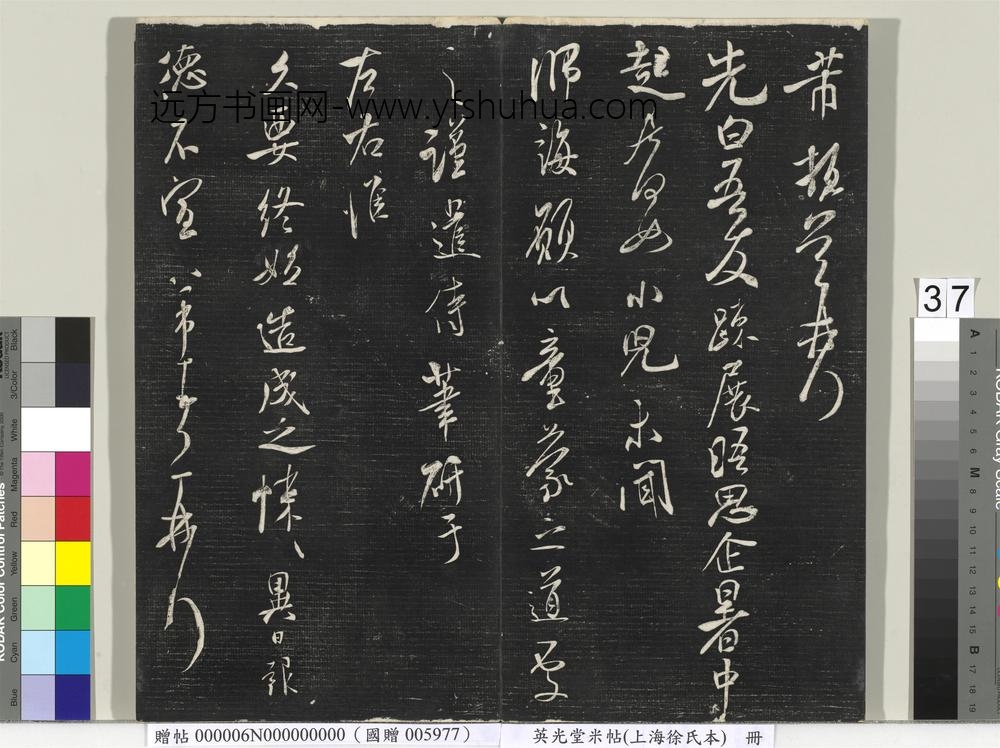 芾頓首再拜
先白吾友踈展晤思企暑中
起居何如小兒未聞
師誨願以童蒙之道
謹遣侍筆研于
左右惟
久要終始造成之悚悚異日報
德不宣芾頓首再拜
远方书画网-www.yfshuhua.com
37
贈帖 000006N000000000（國贈 005977）
英光堂米帖(上海徐氏本) 冊
KODAK Color Control Patches
Blue Cyan Green Yellow Red Magenta White 3/Color Black
A 1 2 3 4 5 6 M 8 9 10 11 12 13 14 15 B 17 18 19